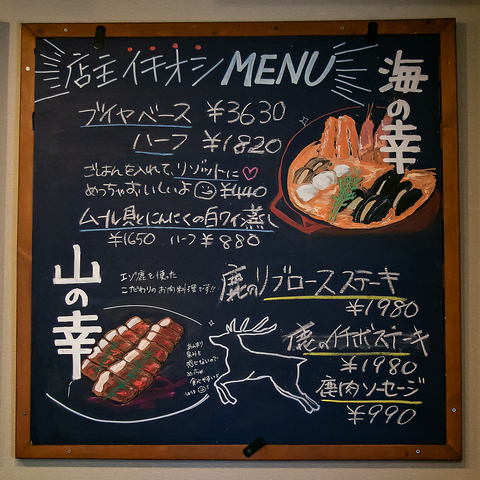 店主イチオシMENU
海の幸
ブイヤベース ¥3630
ハーフ ¥1820
ごはんを入れて、リゾットに♡
めっちゃおいしいよ ¥440
ムール貝とにんにくの白ワイン蒸し
¥1650 ハーフ ¥880
山の幸
エゾ鹿を使った
こだわりのお肉料理です!!
鹿のリブロースステーキ
¥1980
鹿のイチボステーキ
¥1980
鹿肉ソーセージ
¥990
あんまり
臭みも
感じないので
めっちゃ
食べやすいよ